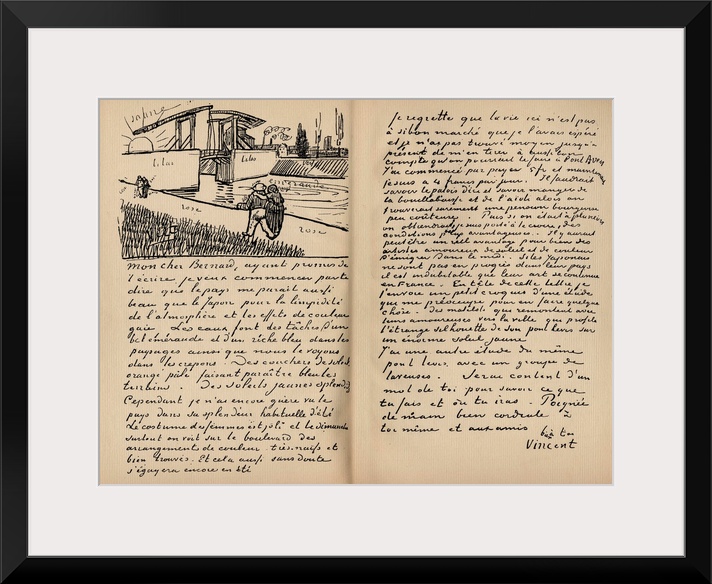 jaune
lilas
lilas
émeraude
rose
rose
Mon cher Bernard, ayant promis de
t'écrire je veux commencer par te
dire que le pays me parait aussi
beau que le Japon pour la limpidité
de l'atmosphère et les effets de couleur
gaie. Les eaux font des tâches d'un
bel émeraude et d'un riche bleu dans les
paysages ainsi que nous le voyons
dans les crepons. Des couchers de soleil
orangé pâle faisant paraître bleu les
terrains. Des soleils jaunes splendides
Cependant je n'ai encore guère vu le
pays dans sa splendeur habituelle d'été
Le costume des femmes est joli et le dimanche
surtout on voit sur le boulevard des
arrangements de couleur très naïfs et
bien trouvés. Et cela aussi sans doute
s'égayera encore en été
Je regrette que la vie ici n'est pas
à si bon marché que je l'avais espéré
et je n'ai pas trouvé moyen jusqu'à
présent de m'en tirer à aussi bon
compte qu'on pourrait le faire à Pont Aven
J'ai commencé par payer 5 fr et maintenant
je suis à 4 francs par jour. Il faudrait
savoir le patois d'ici et savoir manger de
la bouillabaisse et de l'aïoli alors on
trouverait surement une pension bourgeoise
peu coûteuse. Puis si on était à plusieurs
on obtiendrait je suis porté à le croire, des
conditions plus avantageuses. Il y aurait
peut être un réel avantage pour bien des
artistes amoureux de soleil et de couleur
d'émigrer dans le midi. Si les Japonais
ne sont pas en progrès dans leur pays
il est indubitable que leur art se continue
en France. En tête de cette lettre je
t'envoie un petit croquis d'une étude
que me préoccupe pour en faire quelque
chose. Des matelots qui remontent avec
leurs amoureuses vers la ville qui profile
l'étrange silhouette de son pont levis sur
un enorme soleil jaune
J'ai une autre étude du même
pont levis, avec un groupe de
laveuses. Serai content d'un
mot de toi pour savoir ce que
tu fais et où tu iras. Poignée
de main bien cordiale à
toi même et aux amis b. à toi
Vincent